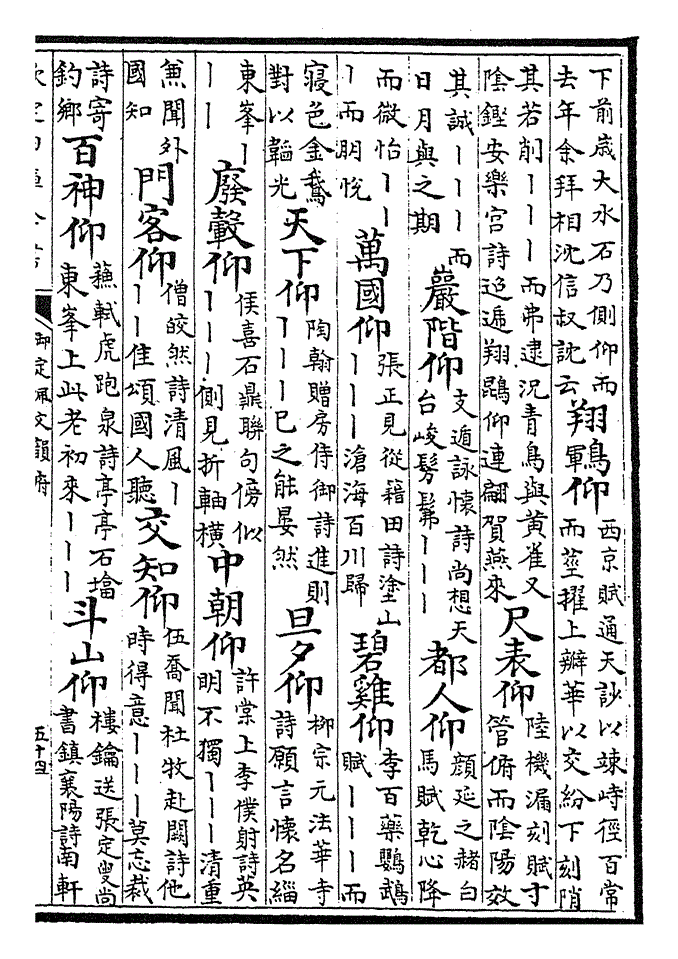 下前歲大水石乃側仰而
去年余拜相沈信叔說云
翔鶤仰
西京賦通天訬以竦峙徑百常
而莖擢上辦華以交紛下刻陗
其若削丨丨丨而弗逮況青鳥與黃雀又
陰鏗安樂宮詩迢遞翔鵾仰連翩賀燕來
尺表仰
陸機漏刻賦寸
管俯而陰陽效
其誠丨丨丨而
日月與之期
巖階仰
支遁詠懷詩尚想天
台峻髣髴丨丨丨
都人仰
顏延之赭白
馬賦乾心降
而微怡丨丨
丨而朋悅
萬國仰
張正見從籍田詩塗山
丨丨丨滄海百川歸
碧雞仰
李百藥鸚鵡
賦丨丨丨而
寢色金鵝
對以韜光
天下仰
陶翰贈房侍御詩進則
丨丨丨已之能晏然
旦夕仰
柳宗元法華寺
詩願言懷名緇
東峯丨
丨丨
廢轂仰
侯喜石鼎聯句傍似
丨丨丨側見折軸橫
中朝仰
許棠上李僕射詩英
明不獨丨丨丨清重
兼聞外
國知
門客仰
僧皎然詩清風丨
丨丨佳頌國人聽
交知仰
伍喬聞杜牧赴闕詩他
時得意丨丨丨莫忘裁
詩寄
釣鄉
百神仰
蘇軾虎跑泉詩亭亭石塔
東峯上此老初來丨丨丨
斗山仰
樓鑰送張定叟尚
書鎮襄陽詩南軒
欽定四庫全書
御定佩文韻府
五十四